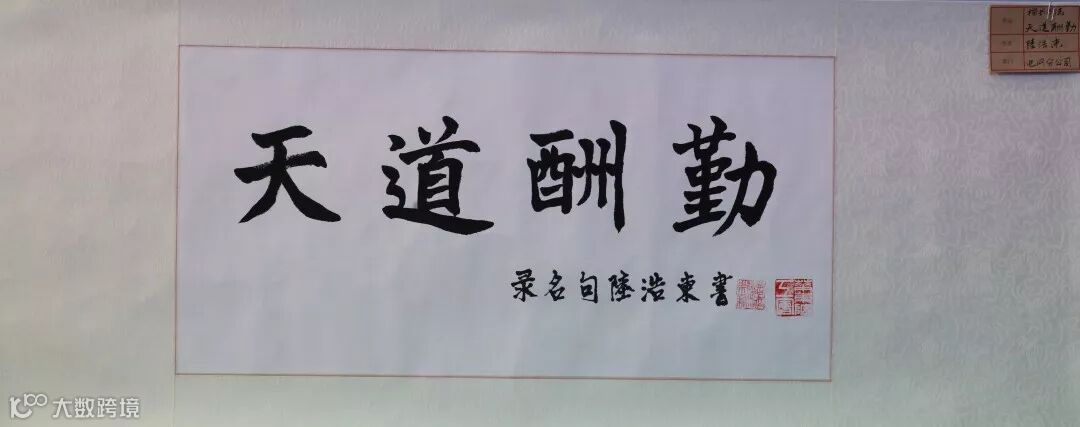 天道酬勤
录名句陸浩東書
天道酬勤
陸浩東
大数跨境